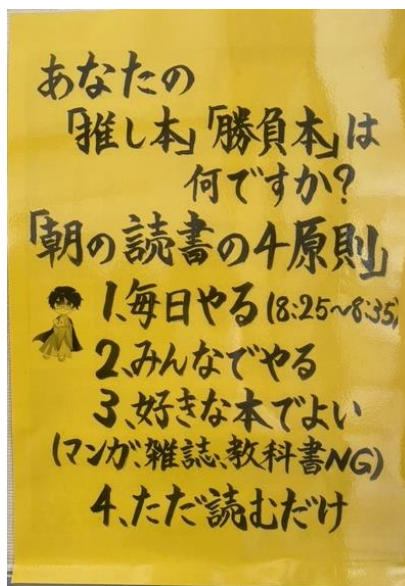 あなたの
「推し本」「勝負本」は
何ですか?
「朝の読書の4原則」
1、毎日やる(8:25~8:35)
2、みんなでやる
3、好きな本でよい
(マンガ、雑誌、教科書NG)
4、ただ読むだけ